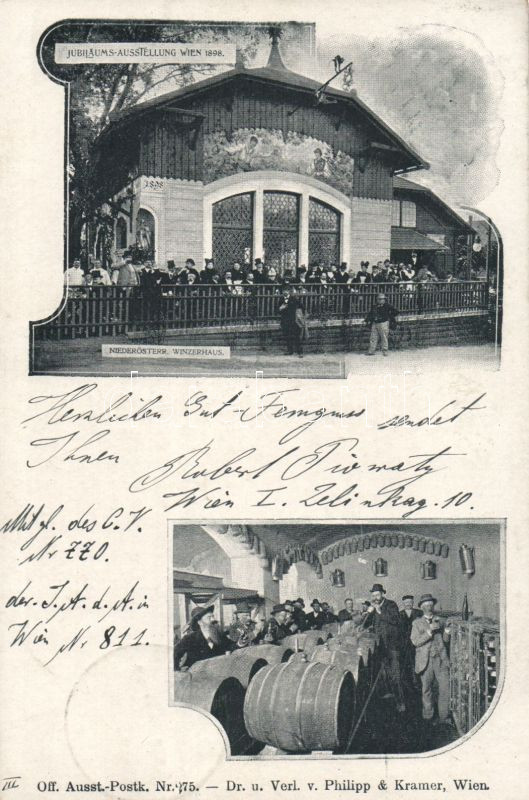 JUBILÄUMS-AUSSTELLUNG WIEN 1898.
1898
NIEDERÖSTERR. WINZERHAUS.
Herzlichen Gut-Ferngruss sendet
Ihnen Robert Piowaty
Wien I. Zelinkag. 10.
Mitgl. des C. V.
Nr 770.
der. I. A. d. A. in
Wien Nr 811.
III Off. Ausst.-Postk. Nr. 75. — Dr. u. Verl. v. Philipp & Kramer, Wien.